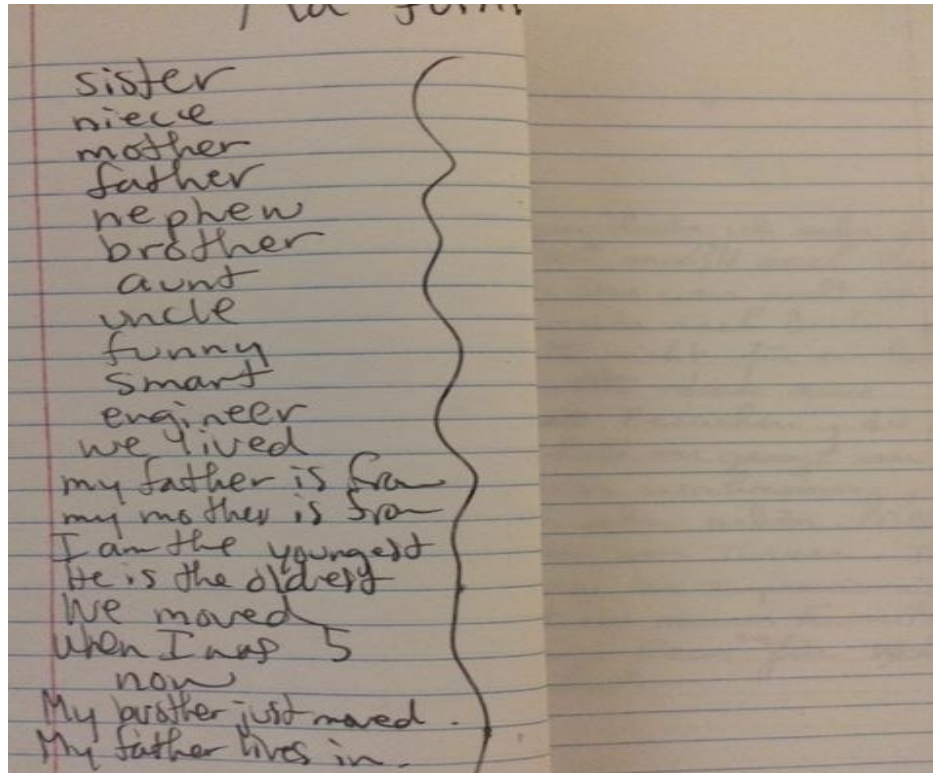 sister
niece
mother
father
nephew
brother
aunt
uncle
funny
smart
engineer
we lived
my father is from
my mother is from
I am the youngest
He is the oldest
We moved
when I was 5
now
My brother just moved.
My father lives in.